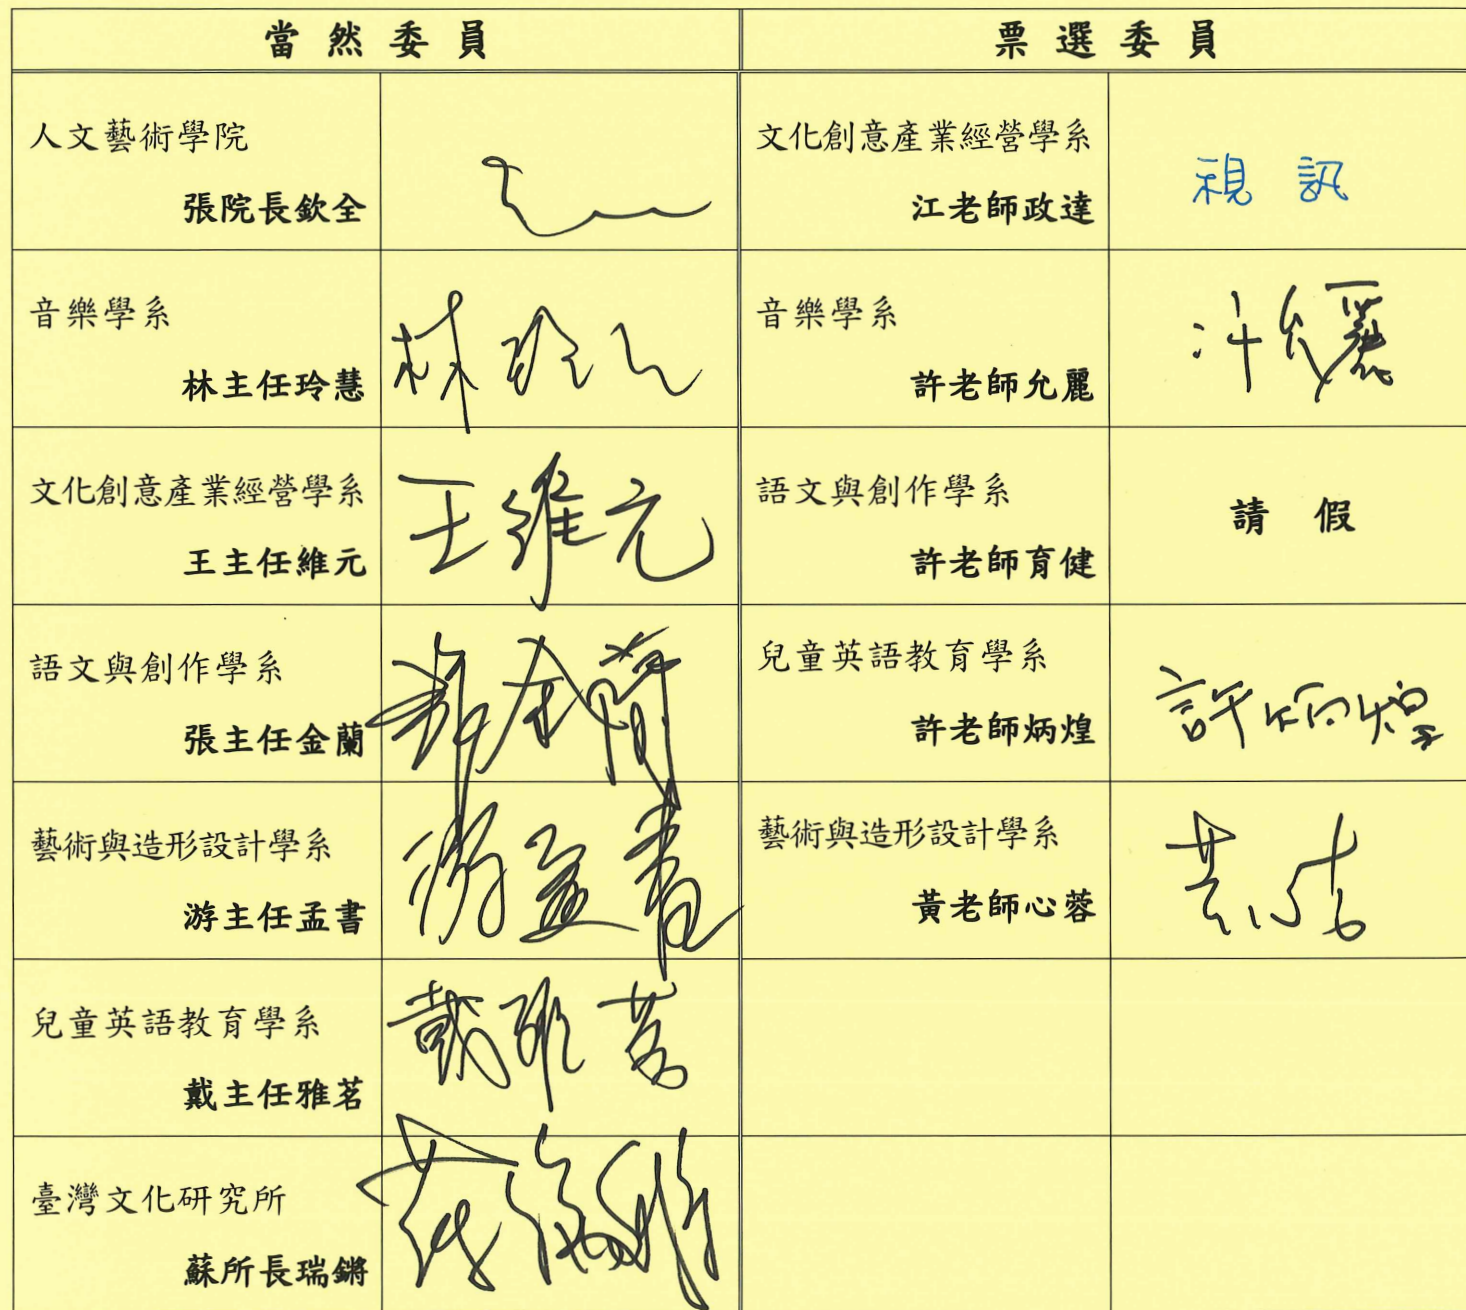 當然委員
票選委員
人文藝術學院
張院長欽全
文化創意產業經營學系
江老師政達
視訊
音樂學系
林主任玲慧
林玲
音樂學系
許老師允麗
許允麗
文化創意產業經營學系
王主任維元
王維元
語文與創作學系
許老師育健
請假
語文與創作學系
張主任金蘭
張金蘭
兒童英語教育學系
許老師炳煌
許炳煌
藝術與造形設計學系
游主任孟書
游孟書
藝術與造形設計學系
黃老師心蓉
兒童英語教育學系
戴主任雅茗
戴雅茗
臺灣文化研究所
蘇所長瑞鏘